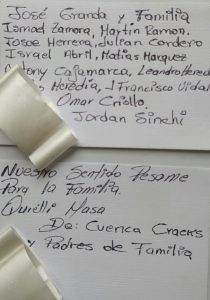 José Granda y Familia
Ismael Zamora, Martín Ramon.
Josue Herrera, Julian Cordero
Israel Abril, Matias Marquez
Antony Cajamarca, Leandro Hered
Heredia, J Francisco Vidal
Omar Criollo,
Jordan Sinchi
Nuestro Sentido Pesame
Para la Familia.
Quilli Masa
De: Cuenca Cracks
y Padres de Familia